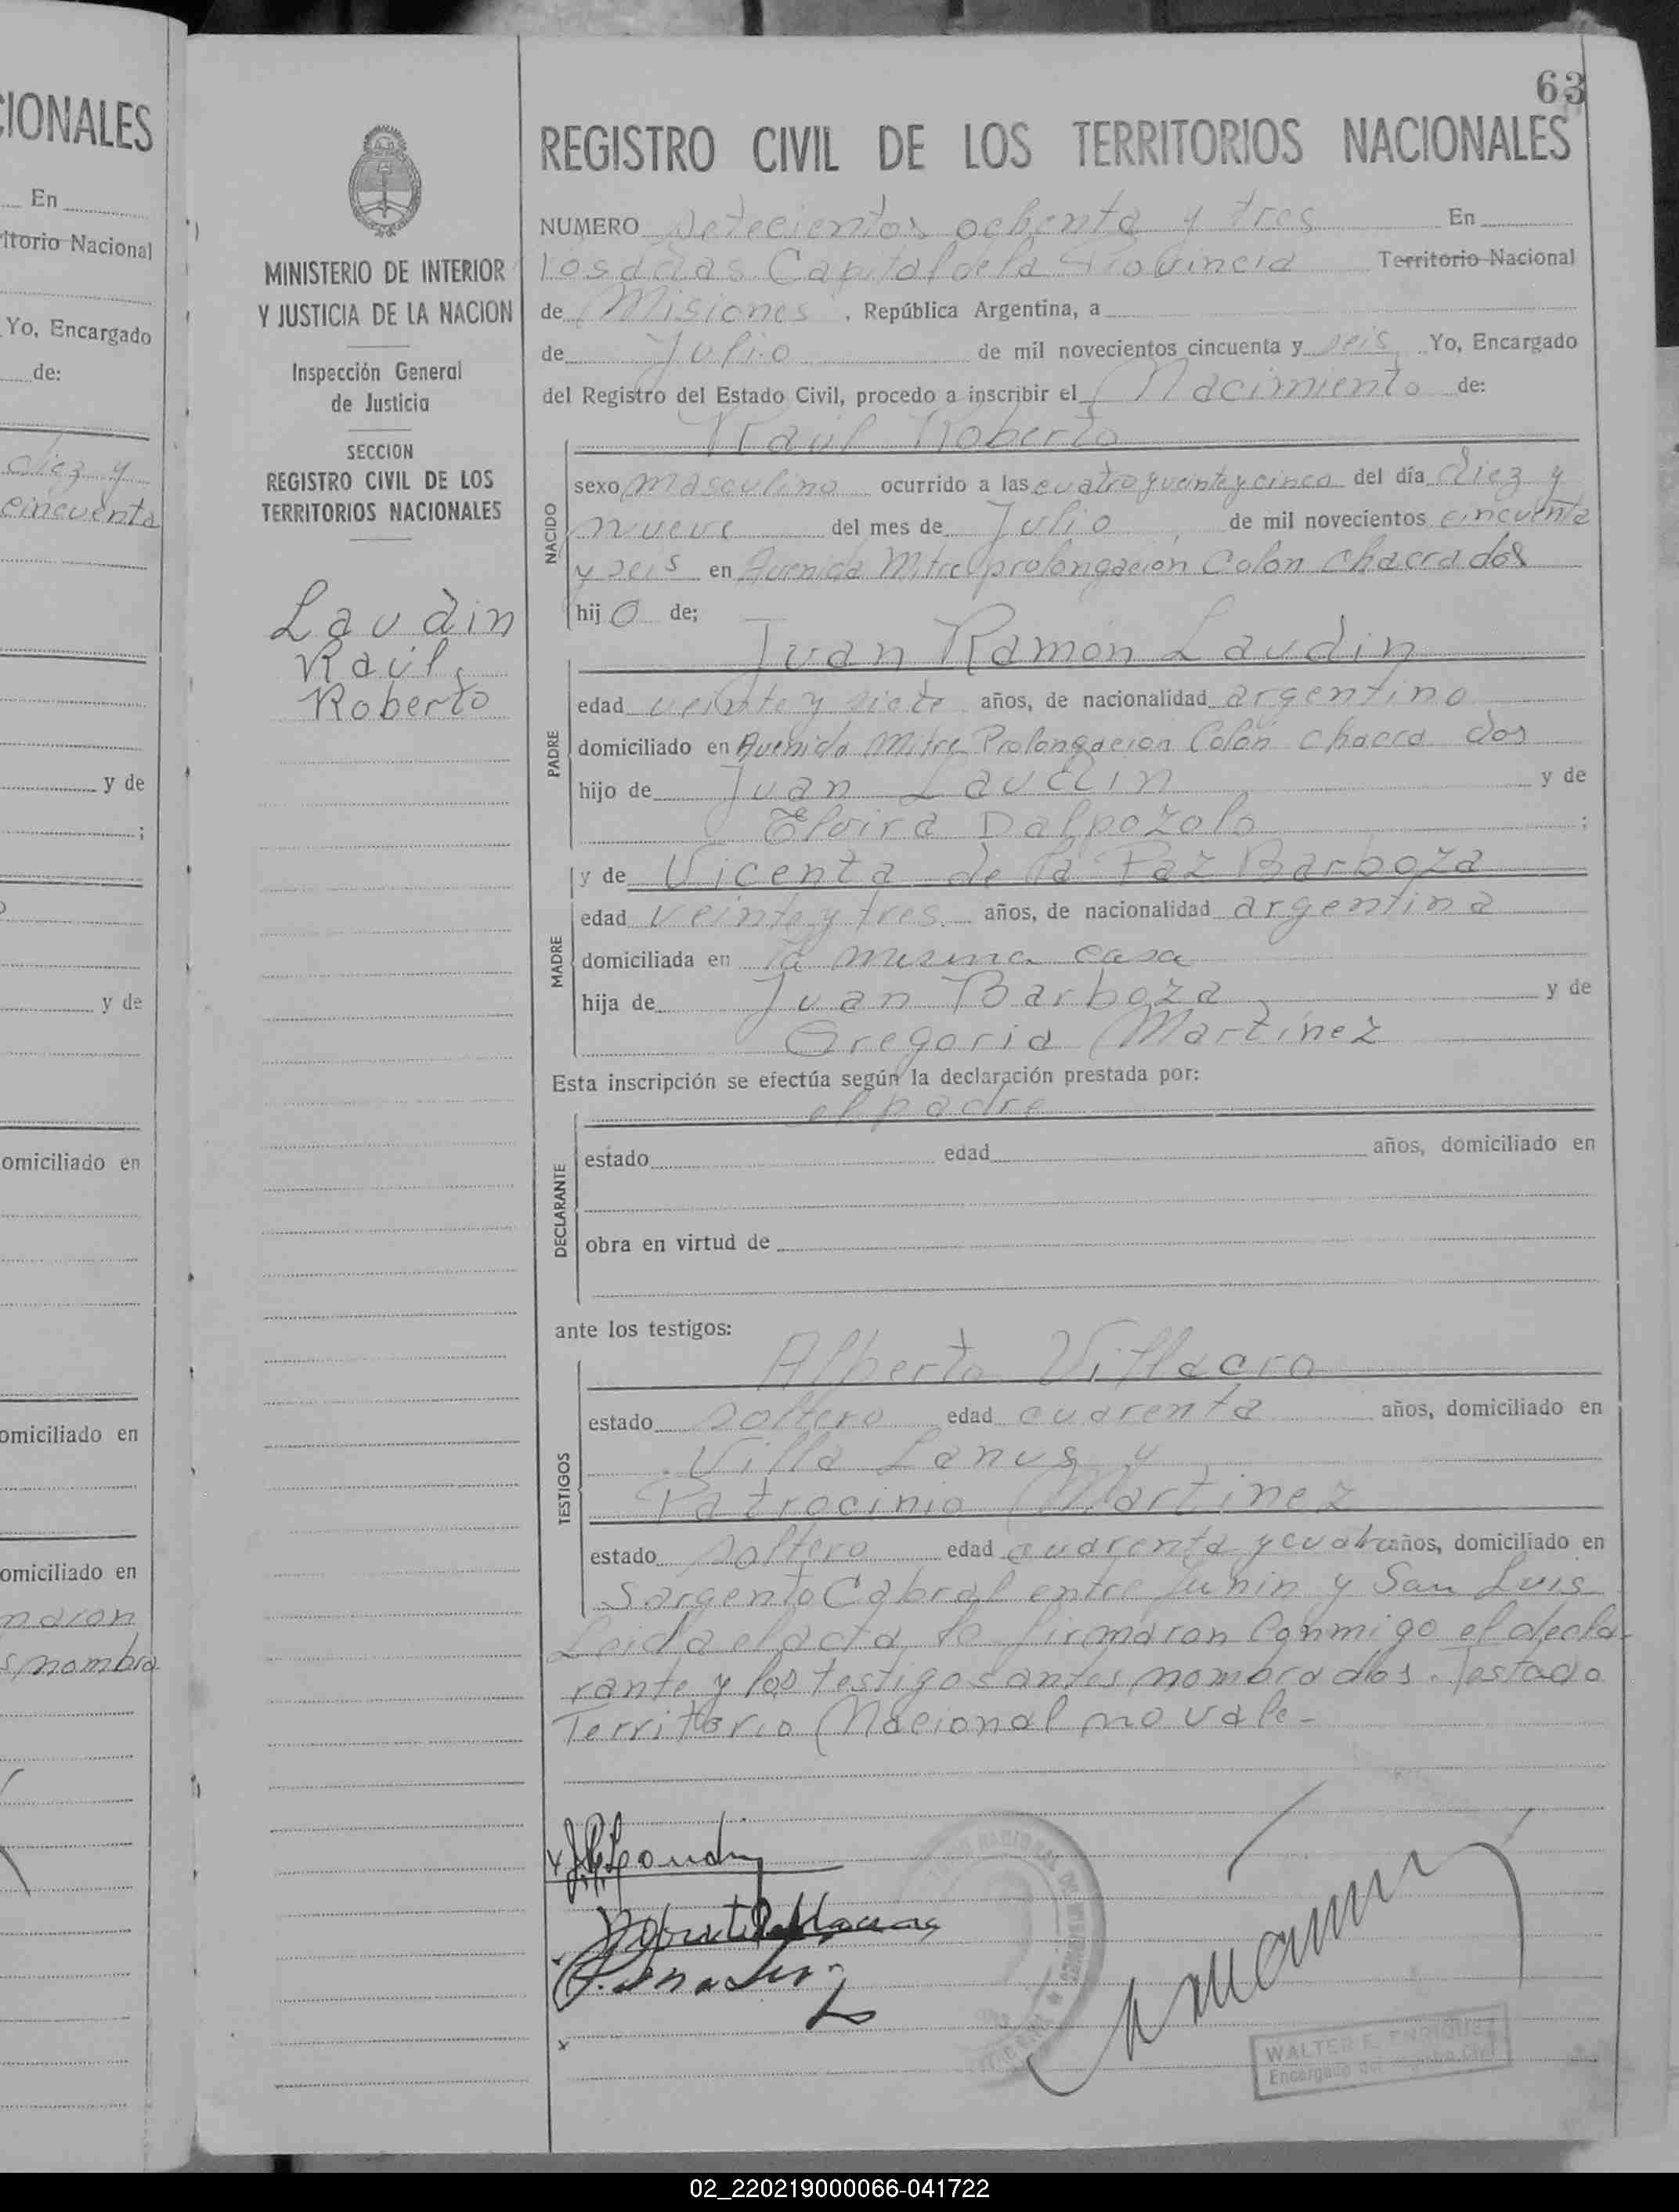 CIONALES
En
ritorio Nacional
Yo, Encargado
de:
diez y
cincuenta
y de
;
y de
omiciliado en
omiciliado en
omiciliado en
maron
s nombra
MINISTERIO DE INTERIOR
Y JUSTICIA DE LA NACION
Inspección General
de Justicia
SECCION
REGISTRO CIVIL DE LOS
TERRITORIOS NACIONALES
Laudin
Raúl
Roberto
63
REGISTRO CIVIL DE LOS TERRITORIOS NACIONALES
NUMERO setecientos ochenta y tres En
Posadas Capital de la Provincia Territorio Nacional
de Misiones, República Argentina, a
de Julio de mil novecientos cincuenta y seis Yo, Encargado
del Registro del Estado Civil, procedo a inscribir el Nacimiento de:
Raúl Roberto
NACIDO
sexo masculino ocurrido a las cuatro y veinte y cinco del día diez y
nueve del mes de Julio de mil novecientos cincuenta
y seis en Avenida Mitre prolongación Colon chacra dos
hijo de;
Juan Ramón Laudin
PADRE
edad veinte y siete años, de nacionalidad argentino
domiciliado en Avenida Mitre Prolongacion Colón chacra dos
hijo de Juan Laudin y de
Elvira Dalpozolo ;
y de Vicenta de la Paz Barboza
MADRE
edad veinte y tres años, de nacionalidad argentina
domiciliada en la misma casa
hija de Juan Barboza y de
Gregoria Martinez
Esta inscripción se efectúa según la declaración prestada por:
el padre
DECLARANTE
estado edad años, domiciliado en
obra en virtud de
ante los testigos:
Alberto Villacro
TESTIGOS
estado soltero edad cuarenta años, domiciliado en
Villa Lanus y
Patrocinio Martinez
estado soltero edad cuarenta y cuatro años, domiciliado en
Sargento Cabral entre Junin y San Luis
Leida el acta, la firmaron conmigo el decla-
rante y los testigos antes nombrados. Testado
Territorio Nacional no vale-
WALTER E. ENRIQUEZ
Encargado del Registro Civil
02_220219000066-041722